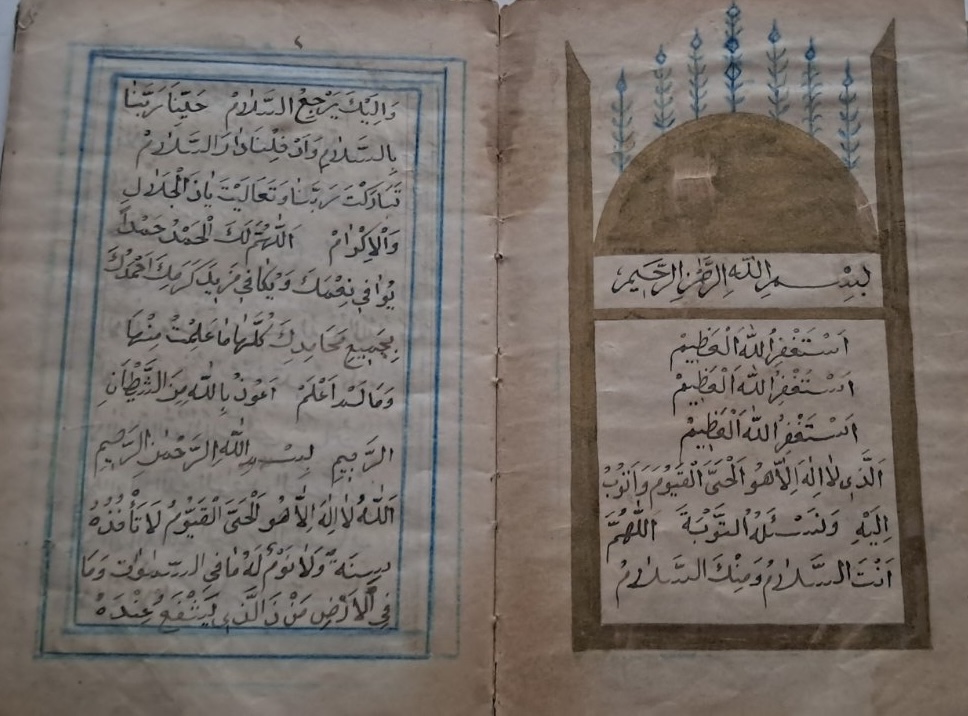 بِسْمِ اللّٰهِ الرَّحْمٰنِ الرَّحٖيمِ
اَسْتَغْفِرُ اللّٰهَ الْعَظٖيمْ
اَسْتَغْفِرُ اللّٰهَ الْعَظٖيمْ
اَسْتَغْفِرُ اللّٰهَ الْعَظٖيمْ
اَلَّذٖى لَا اِلٰهَ اِلَّا هُوَ الْحَىَّ الْقَيُّومَ وَاَتُوبُ
اِلَيْهِ وَنَسْئَلُهُ التَّوْبَةَ اَللّٰهُمَّ
اَنْتَ السَّلَامُ وَمِنْكَ السَّلَامُ
وَاِلَيْكَ يَرْجِعُ السَّلَامُ حَيِّنَا رَبَّنَا
بِالسَّلَامِ وَاَدْخِلْنَا دَارَ السَّلَامْ
تَبَارَكْتَ رَبَّنَا وَتَعَالَيْتَ يَاذَ الْجَلَالِ
وَالْاِكْرَامْ اَللّٰهُمَّ لَكَ الْحَمْدُ حَمْدًا
يُوَافٖى نِعَمَكَ وَيُكَافٖى مَزٖيدَ كَرَمِكَ اَحْمَدُكَ
بِجَمٖيعِ مَحَامِدِكَ كُلِّهَا مَا عَلِمْتُ مِنْهَا
وَمَا لَمْ اَعْلَمْ اَعُوذُ بِاللّٰهِ مِنَ الشَّيْطَانِ
الرَّجٖيمِ بِسْمِ اللّٰهِ الرَّحْمٰنِ الرَّحٖيمِ
اَللّٰهُ لَا اِلٰهَ اِلَّا هُوَ الْحَىُّ الْقَيُّومُ لَا تَأْخُذُهُ
سِنَةٌ وَلَا نَوْمٌ لَهُ مَا فِى السَّمٰوَاتِ وَمَا
فِى الْاَرْضِ مَنْ ذَ الَّذٖى يَشْفَعُ عِنْدَهُ